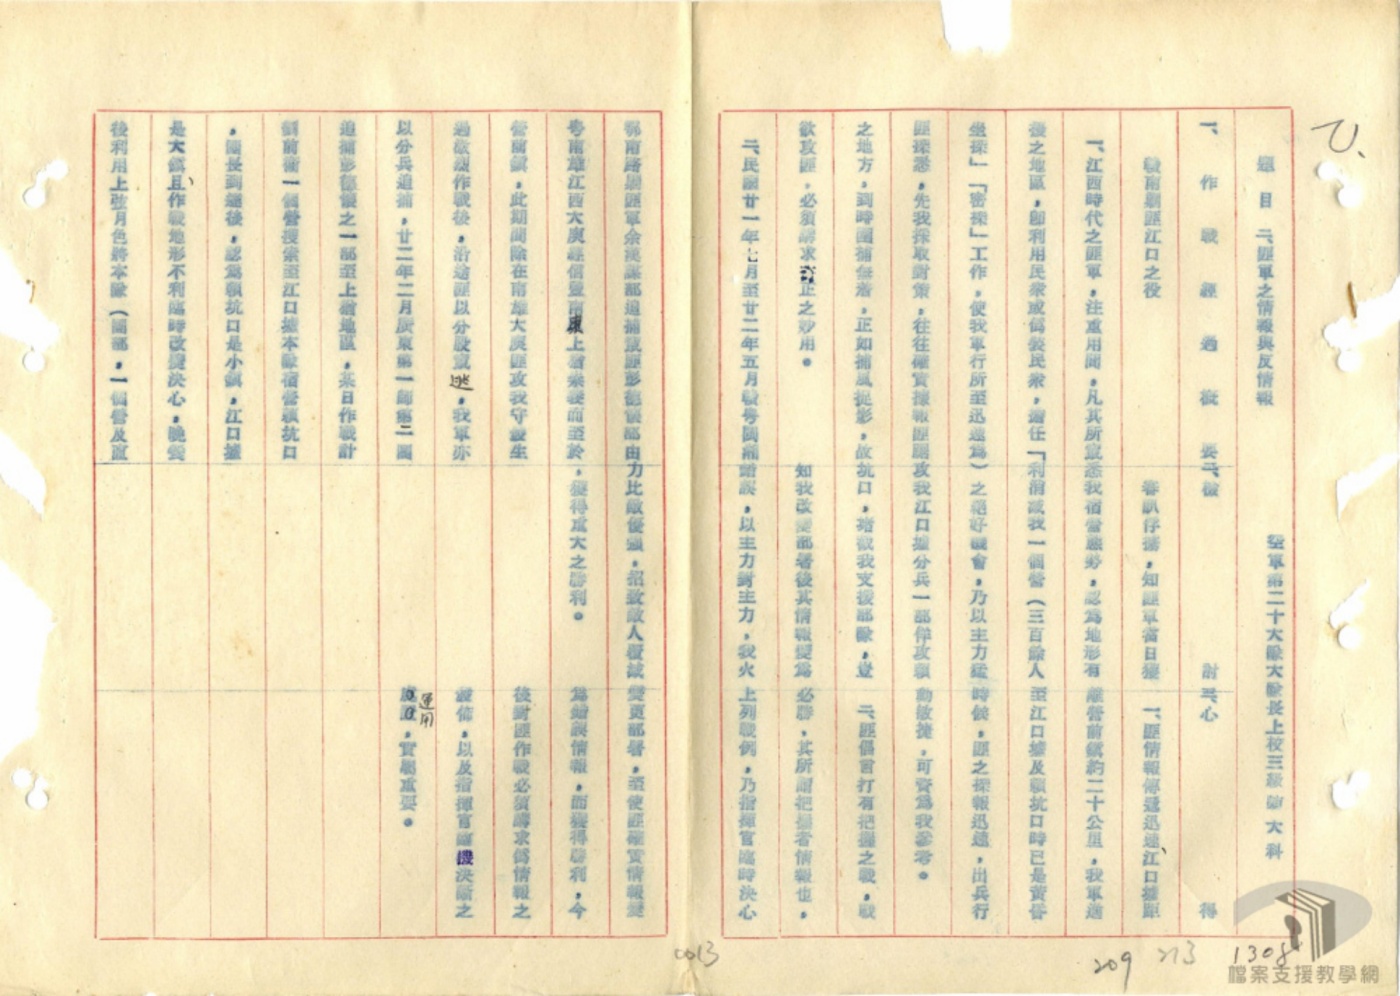 題目 二、匪軍之情報與反情報
空軍第二十大隊大隊長上校三級 大科
一、作戰經過概要
贛南剿匪江口之役
一、江西時代之匪軍，注重用間，凡其所竄
擾之地區，卽利用民衆或僞裝民衆，擔任「
坐探」「密探」工作，使我軍行所至迅速爲
匪探悉，先我採取對策，往往確實據報匪
之地方，到時圍捕無着，正如捕風捉影，故
欲攻匪，必須講求奇正之妙用。
二、民國廿一年七月至廿二年五月贛粵閩湘
鄂南路剿匪軍余漢謀部追捕殘匪彭德懷部由
粵南雄江西大庾經信豐南康上猶崇義而至於
營前鎮，此期間除在南雄大庾匪攻我守發生
過激烈作戰後，沿途匪以分股竄逃，我軍亦
以分兵追捕，廿二年二月廣東第一師第二團
追捕彭德懷之一部至上猶地區，某日作戰計
劃前衞一個營搜索至江口墟本隊宿營坑口
，團長到達後，認爲坑口是小鎮，江口墟
是大鎮且、作戰地形不利臨時改變決心，晚餐
後利用上弦月色將本隊（團部，一個營及直
二、檢討
審訊俘擄，知匪軍當日獲
悉我宿營態勢，認爲地形有
利消滅我一個營（三百餘人
）之絕好機會，乃以主力猛
攻我江口墟分兵一部佯攻
坑口，堵截我支援部隊，豈
知我改變部署後其情報變爲
錯誤，以主力對主力，我火
力比敵優強，招致敵人慘敗
，獲得重大之勝利。
三、心得
一、匪情報傳遞迅速、江口墟距
離營前鎮約二十公里，我軍進
至江口墟及坑口時已是黃昏
時候，匪之探報迅速，出兵行
動敏捷，可資爲我參考。
二、匪倡言打有把握之戰，戰
必勝，其所謂把握者情報也，
上列戰例，乃指揮官臨時決心
變更部署，至使匪確實情報變
爲錯誤情報，而獲得勝利，今
後對匪作戰必須講求僞情報之
散佈，以及指揮官確機決斷之
處置運用，實屬重要。
0013
209
213
1308
檔案支援教學網